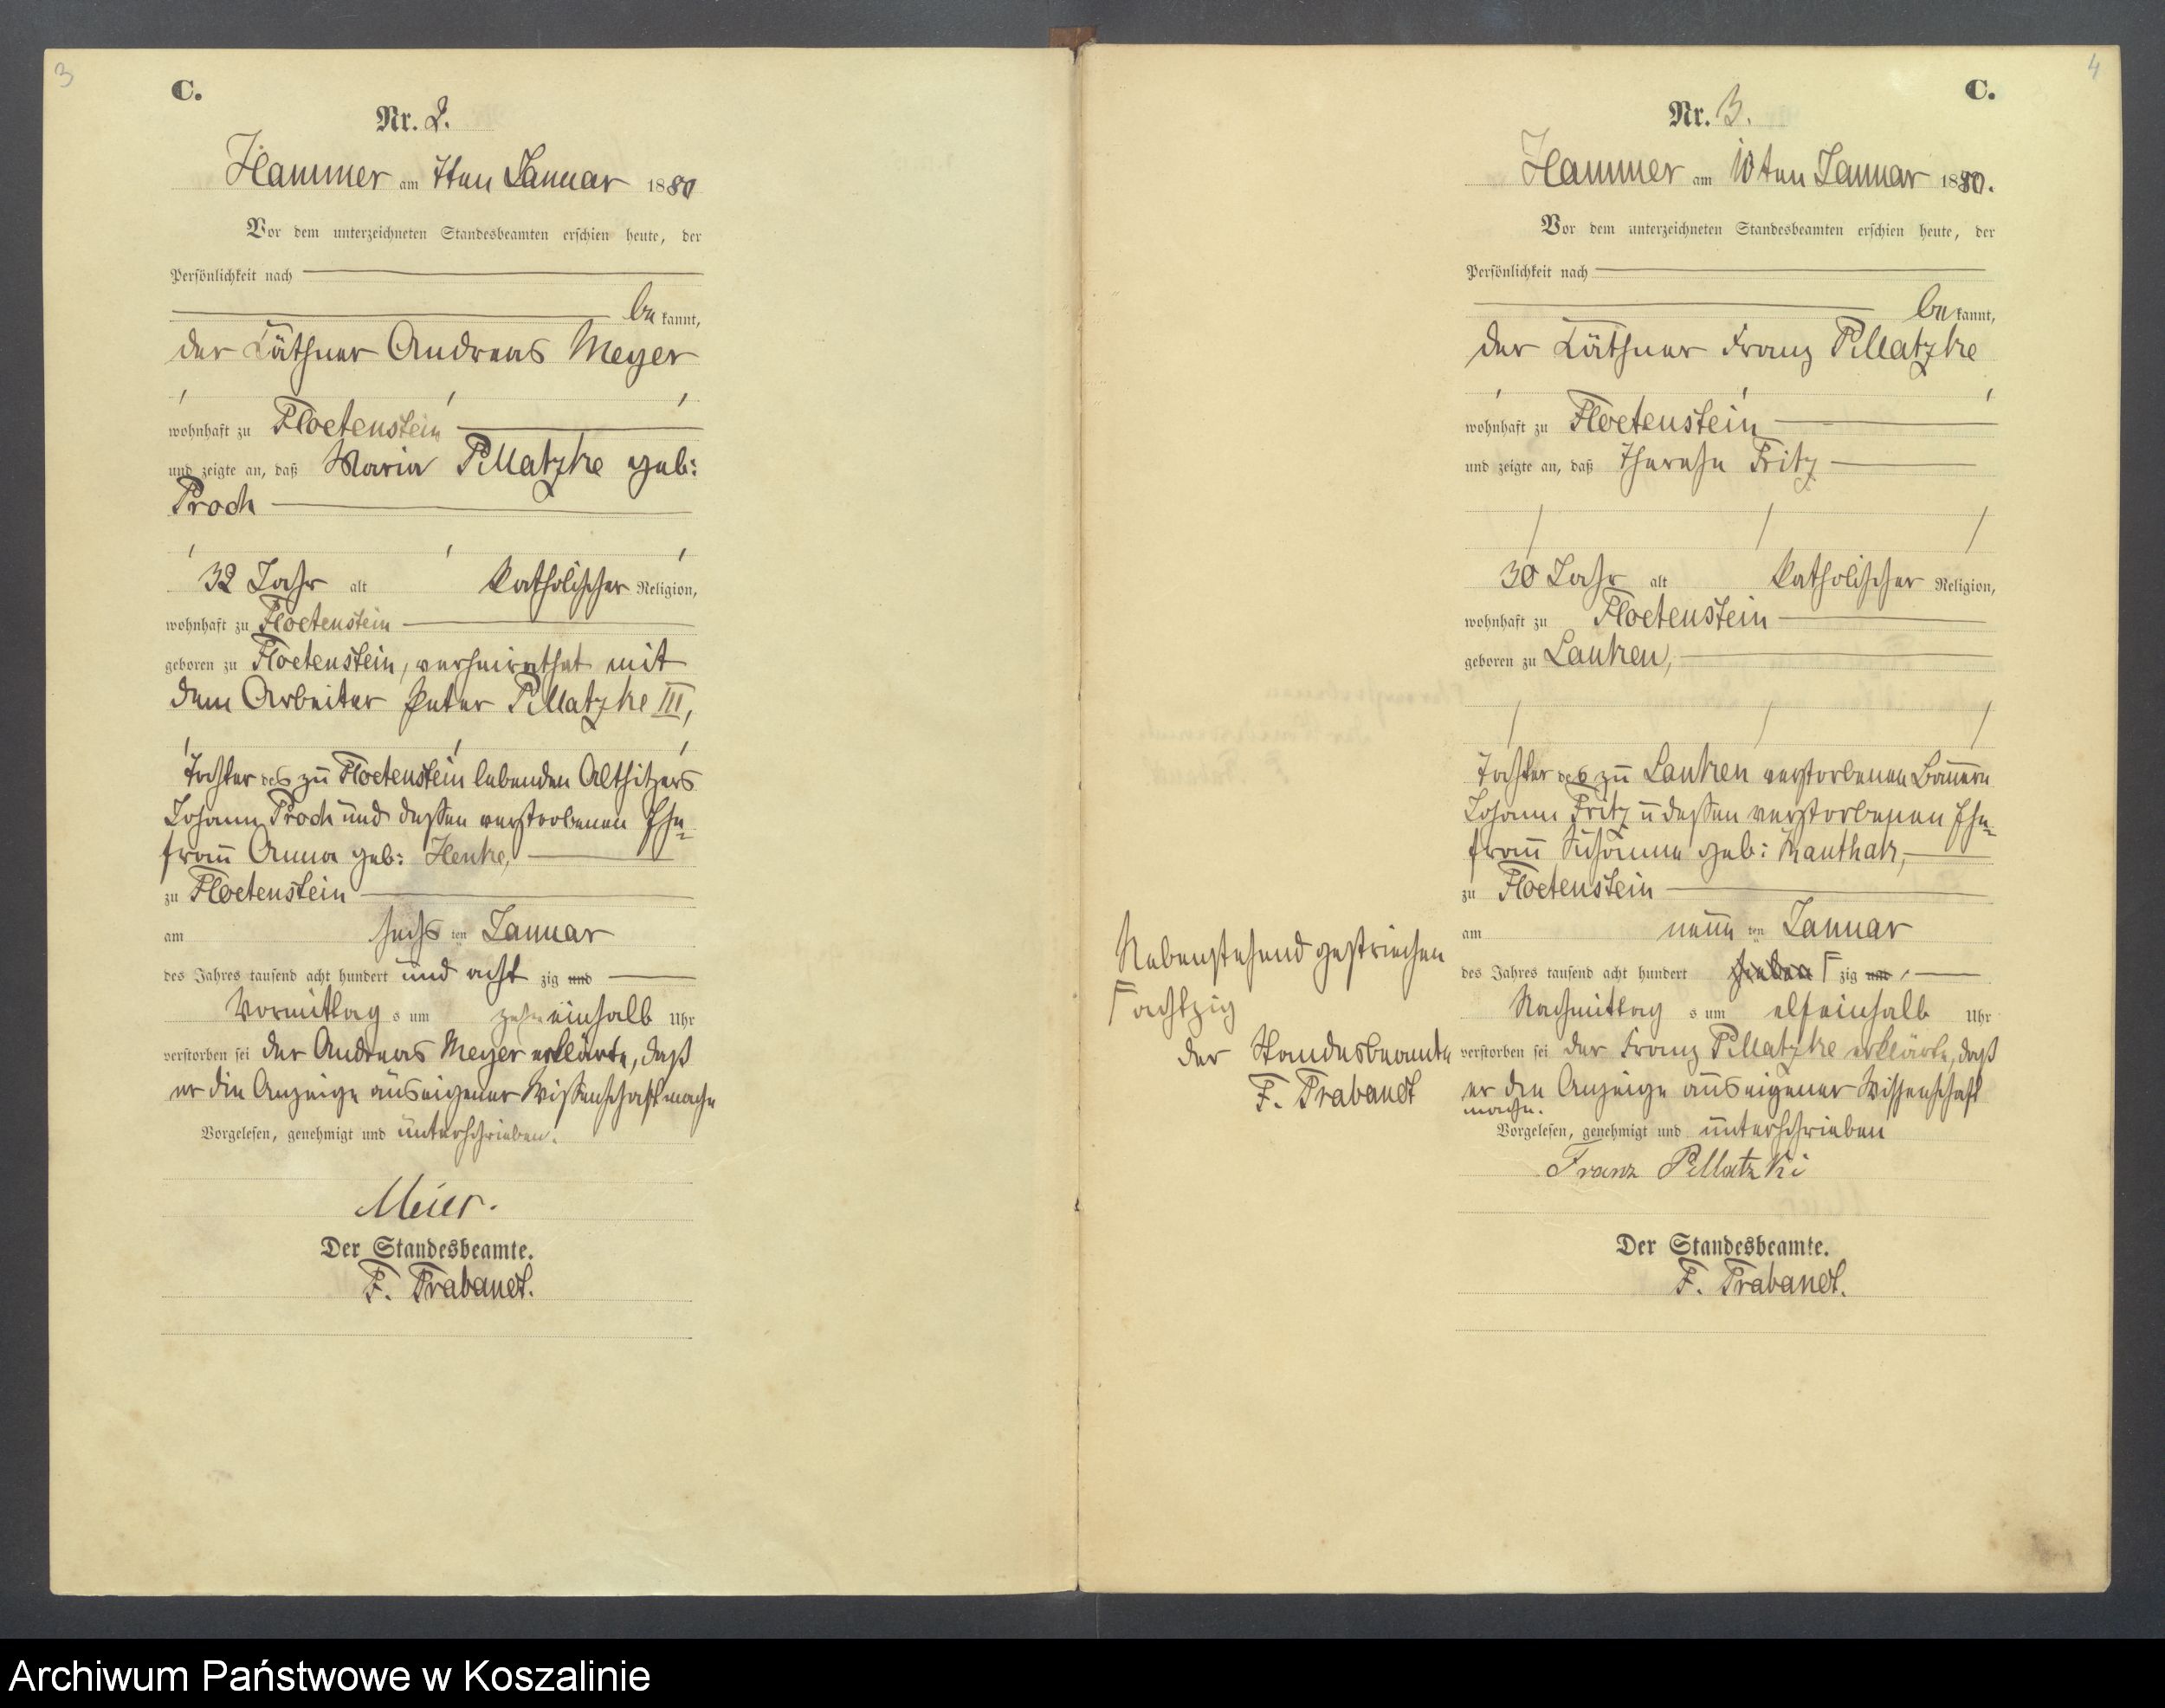 3
C.
Nr. 2.
Hammer am 7ten Januar 1880
Vor dem unterzeichneten Standesbeamten erschien heute, der
Persönlichkeit nach
be kannt,
der Käthner Andreas Meyer
wohnhaft zu Floetenstein
und zeigte an, daß Maria Pillatzke geb:
Proch
32 Jahr alt katholischer Religion,
wohnhaft zu Floetenstein
geboren zu Floetenstein, verheirathet mit
dem Arbeiter Peter Pillatzke III,
Tochter des zu Floetenstein lebenden Altsitzers
Johann Proch und dessen verstorbenen Ehe=
frau Anna geb: Henke,
zu Floetenstein
am sechs ten Januar
des Jahres tausend acht hundert und acht zig und
Vormittag s um zehneinhalb Uhr
verstorben sei der Andreas Meyer erklärte, daß
er die Anzeige aus eigener Wissenschaft mache
Vorgelesen, genehmigt und unterschrieben.
Meier.
Der Standesbeamte.
F. Trabandt.
4
C.
Nr. 3.
Hammer am 10ten Januar 1880.
Vor dem unterzeichneten Standesbeamten erschien heute, der
Persönlichkeit nach
be kannt,
der Käthner Franz Pillatzke
wohnhaft zu Floetenstein
und zeigte an, daß Therese Fritz
30 Jahr alt katholischer Religion,
wohnhaft zu Floetenstein
geboren zu Lanken,
Tochter des zu Lanken verstorbenen Bauern
Johann Fritz u dessen verstorbenen Ehe=
frau Susanna geb: Kanthak,
zu Floetenstein
am neun ten Januar
des Jahres tausend acht hundert sieben Γ zig und
Nachmittag s um elfeinhalb Uhr
verstorben sei der Franz Pillatzke erklärte, daß
er die Anzeige aus eigener Wissenschaft
mache.
Vorgelesen, genehmigt und unterschrieben
Franz Pillatzki
Der Standesbeamte.
F. Trabandt.
Nebenstehend gestrichen
Γ achtzig
der Standesbeamte
F. Trabandt
Archiwum Państwowe w Koszalinie